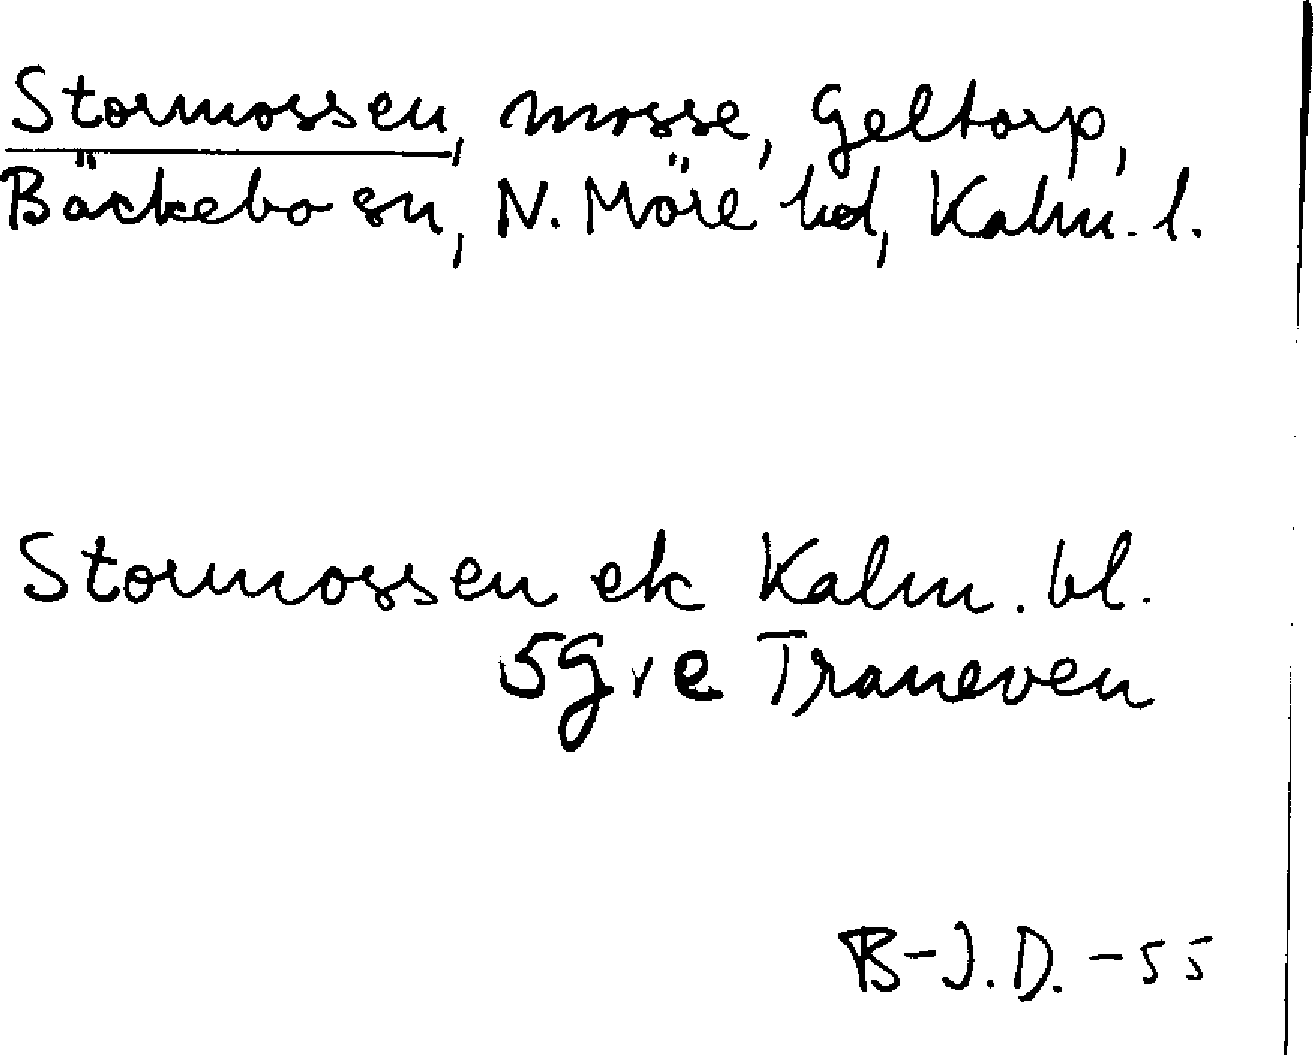 Stormossen, mosse, Geltorp,
Bäckebo sn, N. Möre hd, Kalm. l.
Stormossen ek Kalm. bl.
5G v e Traneven
B-J.D. -55